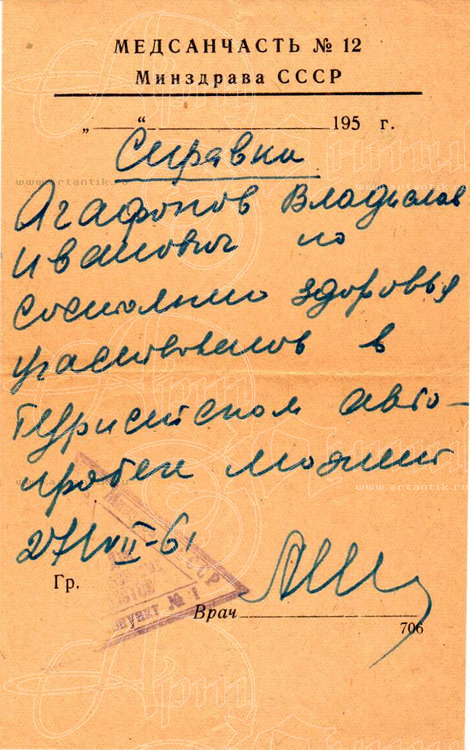 МЕДСАНЧАСТЬ № 12
Минздрава СССР
„ “ 195 г.
Справка
Агафонов Владислав
Иванович по
состоянию здоровья
участвовать в
туристском авто-
пробеге может
27/VII-61
СССР
пункт № 1
Гр.
Врач
706
www.artantik.ru
www.artantik.ru